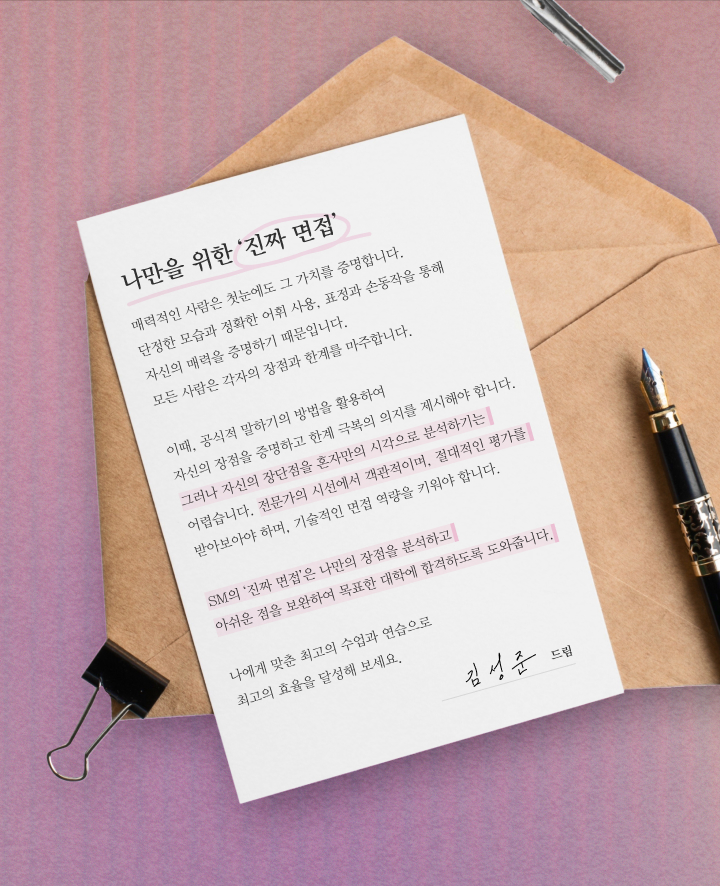 나만을 위한 '진짜 면접'
매력적인 사람은 첫눈에도 그 가치를 증명합니다.
단정한 모습과 정확한 어휘 사용, 표정과 손동작을 통해
자신의 매력을 증명하기 때문입니다.
모든 사람은 각자의 장점과 한계를 마주합니다.
이때, 공식적 말하기의 방법을 활용하여
자신의 장점을 증명하고 한계 극복의 의지를 제시해야 합니다.
그러나 자신의 장단점을 혼자만의 시각으로 분석하기는
어렵습니다. 전문가의 시선에서 객관적이며, 절대적인 평가를
받아보아야 하며, 기술적인 면접 역량을 키워야 합니다.
SM의 '진짜 면접'은 나만의 장점을 분석하고
아쉬운 점을 보완하여 목표한 대학에 합격하도록 도와줍니다.
나에게 맞춘 최고의 수업과 연습으로
최고의 효율을 달성해 보세요.
김성준 드림